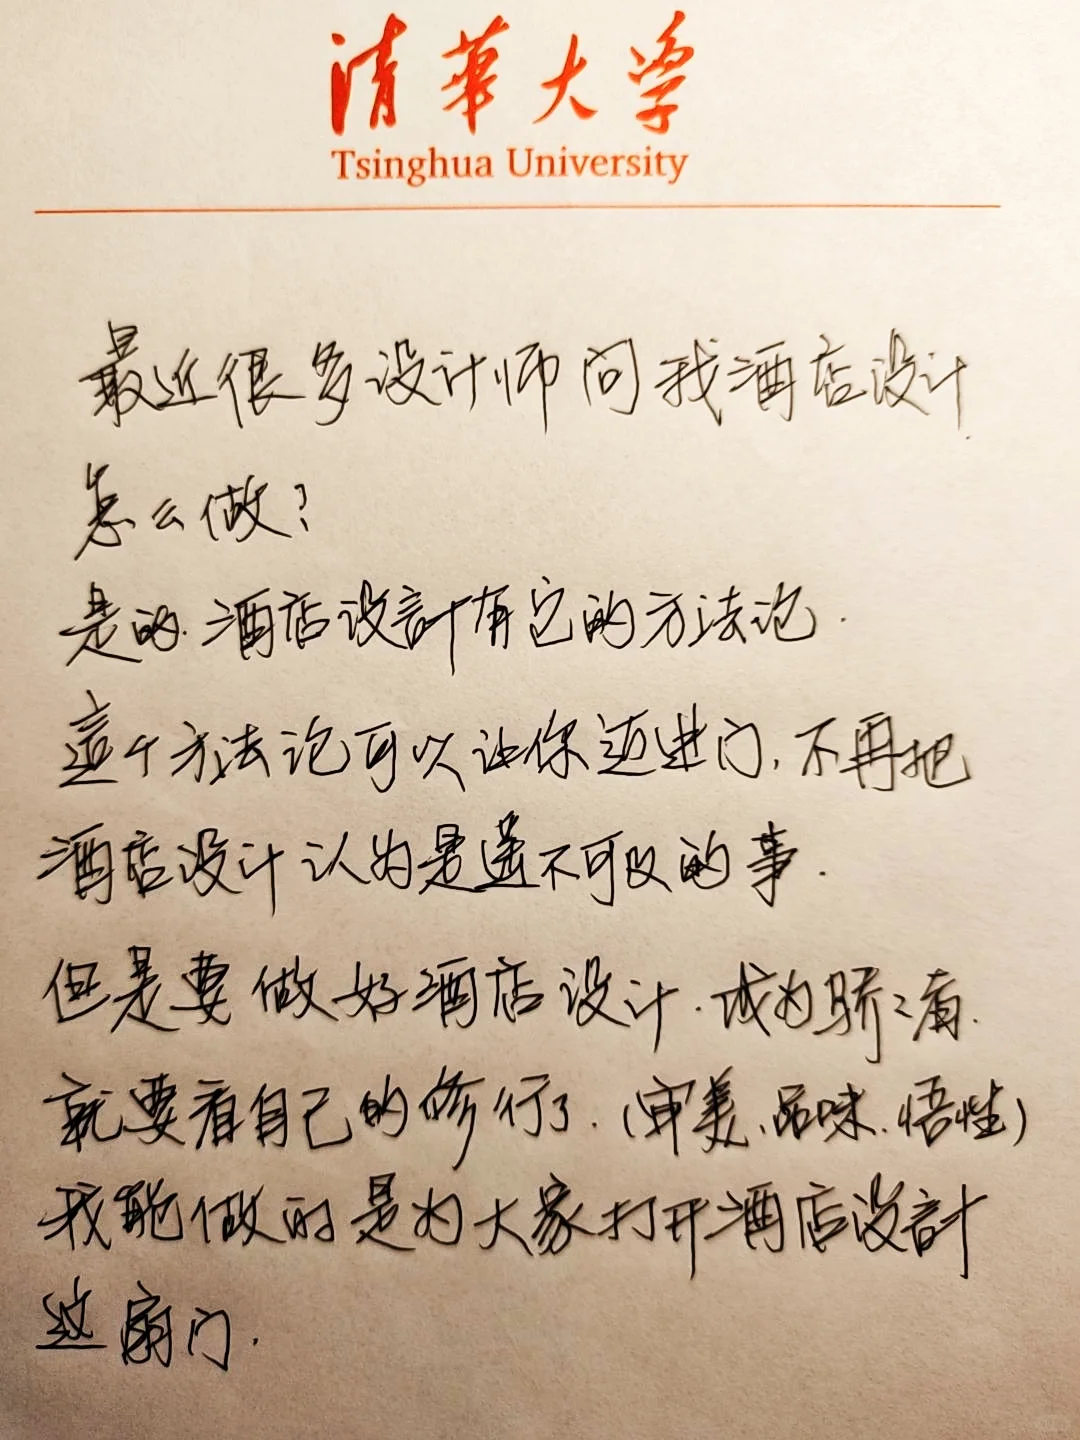 清華大学
Tsinghua University
最近很多设计师问我酒店设计
怎么做?
是的.酒店设計有它的方法论.
這个方法论可以让你迈进门,不再把
酒店设计认为是遥不可及的事.
但是要做好酒店设计.成为骄之者.
就要看自己的修行了.(审美、品味.悟性)
我能做的是为大家打开酒店设計
这扇门.